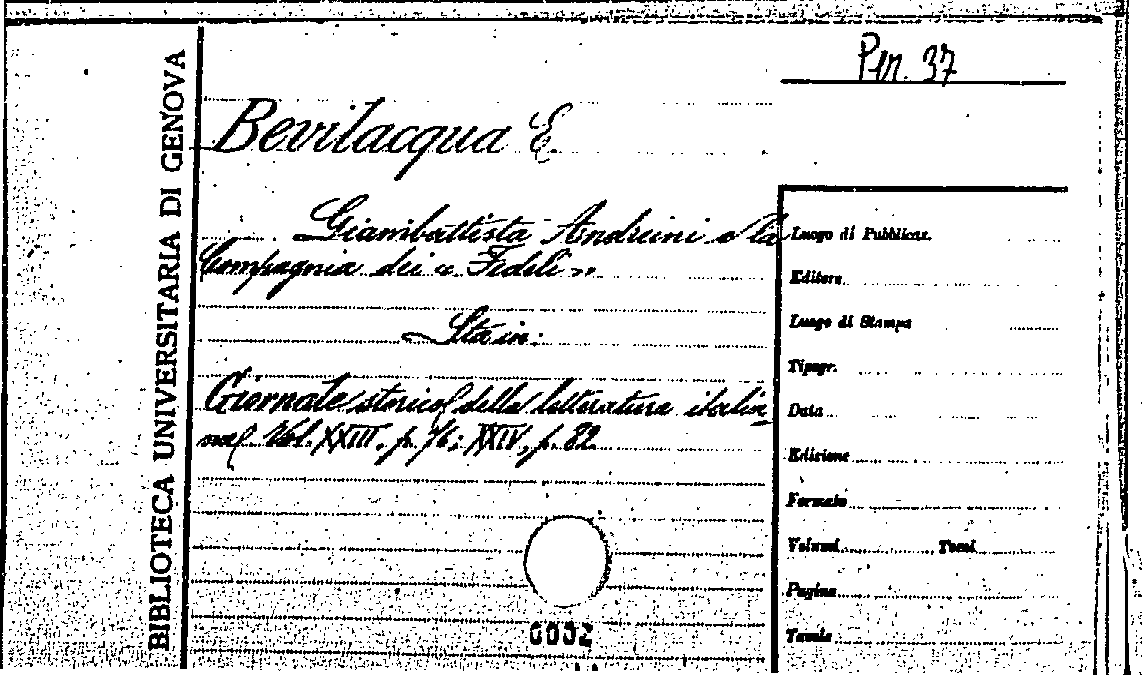 Per. 37
BIBLIOTECA UNIVERSITARIA DI GENOVA
Bevilacqua E.
Giambattista Andreini e la
Compagnia dei « Fedeli »
Sta in:
Giornale storico della letteratura italia
na Vol. XXIII, p. 76; XXIV, p. 82
0002
Luogo di Pubblicaz.
Editore
Luogo di Stampa
Tipogr.
Data
Edizione
Formato
Volumi Tomi
Pagine
Tavole